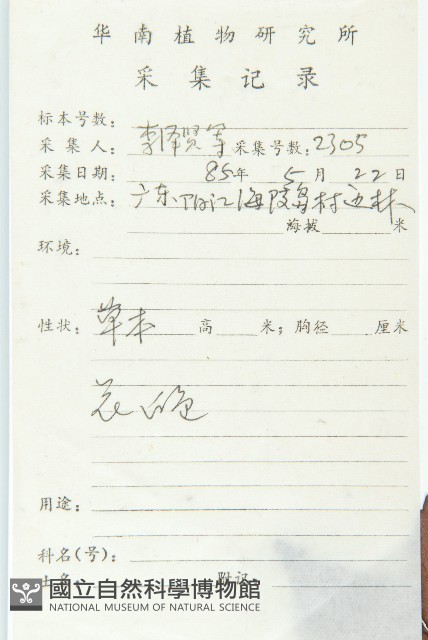 华南植物研究所
采集记录
标本号数:
采集人: 李泽贤等 采集号数: 2305
采集日期: 85年 5月 22日
采集地点: 广东阳江海陵岛村边林
海拔 米
环境:
性状: 草本 高 米; 胸径 厘米
花白色
用途:
科名(号):
國立自然科學博物館
NATIONAL MUSEUM OF NATURAL SCIENCE